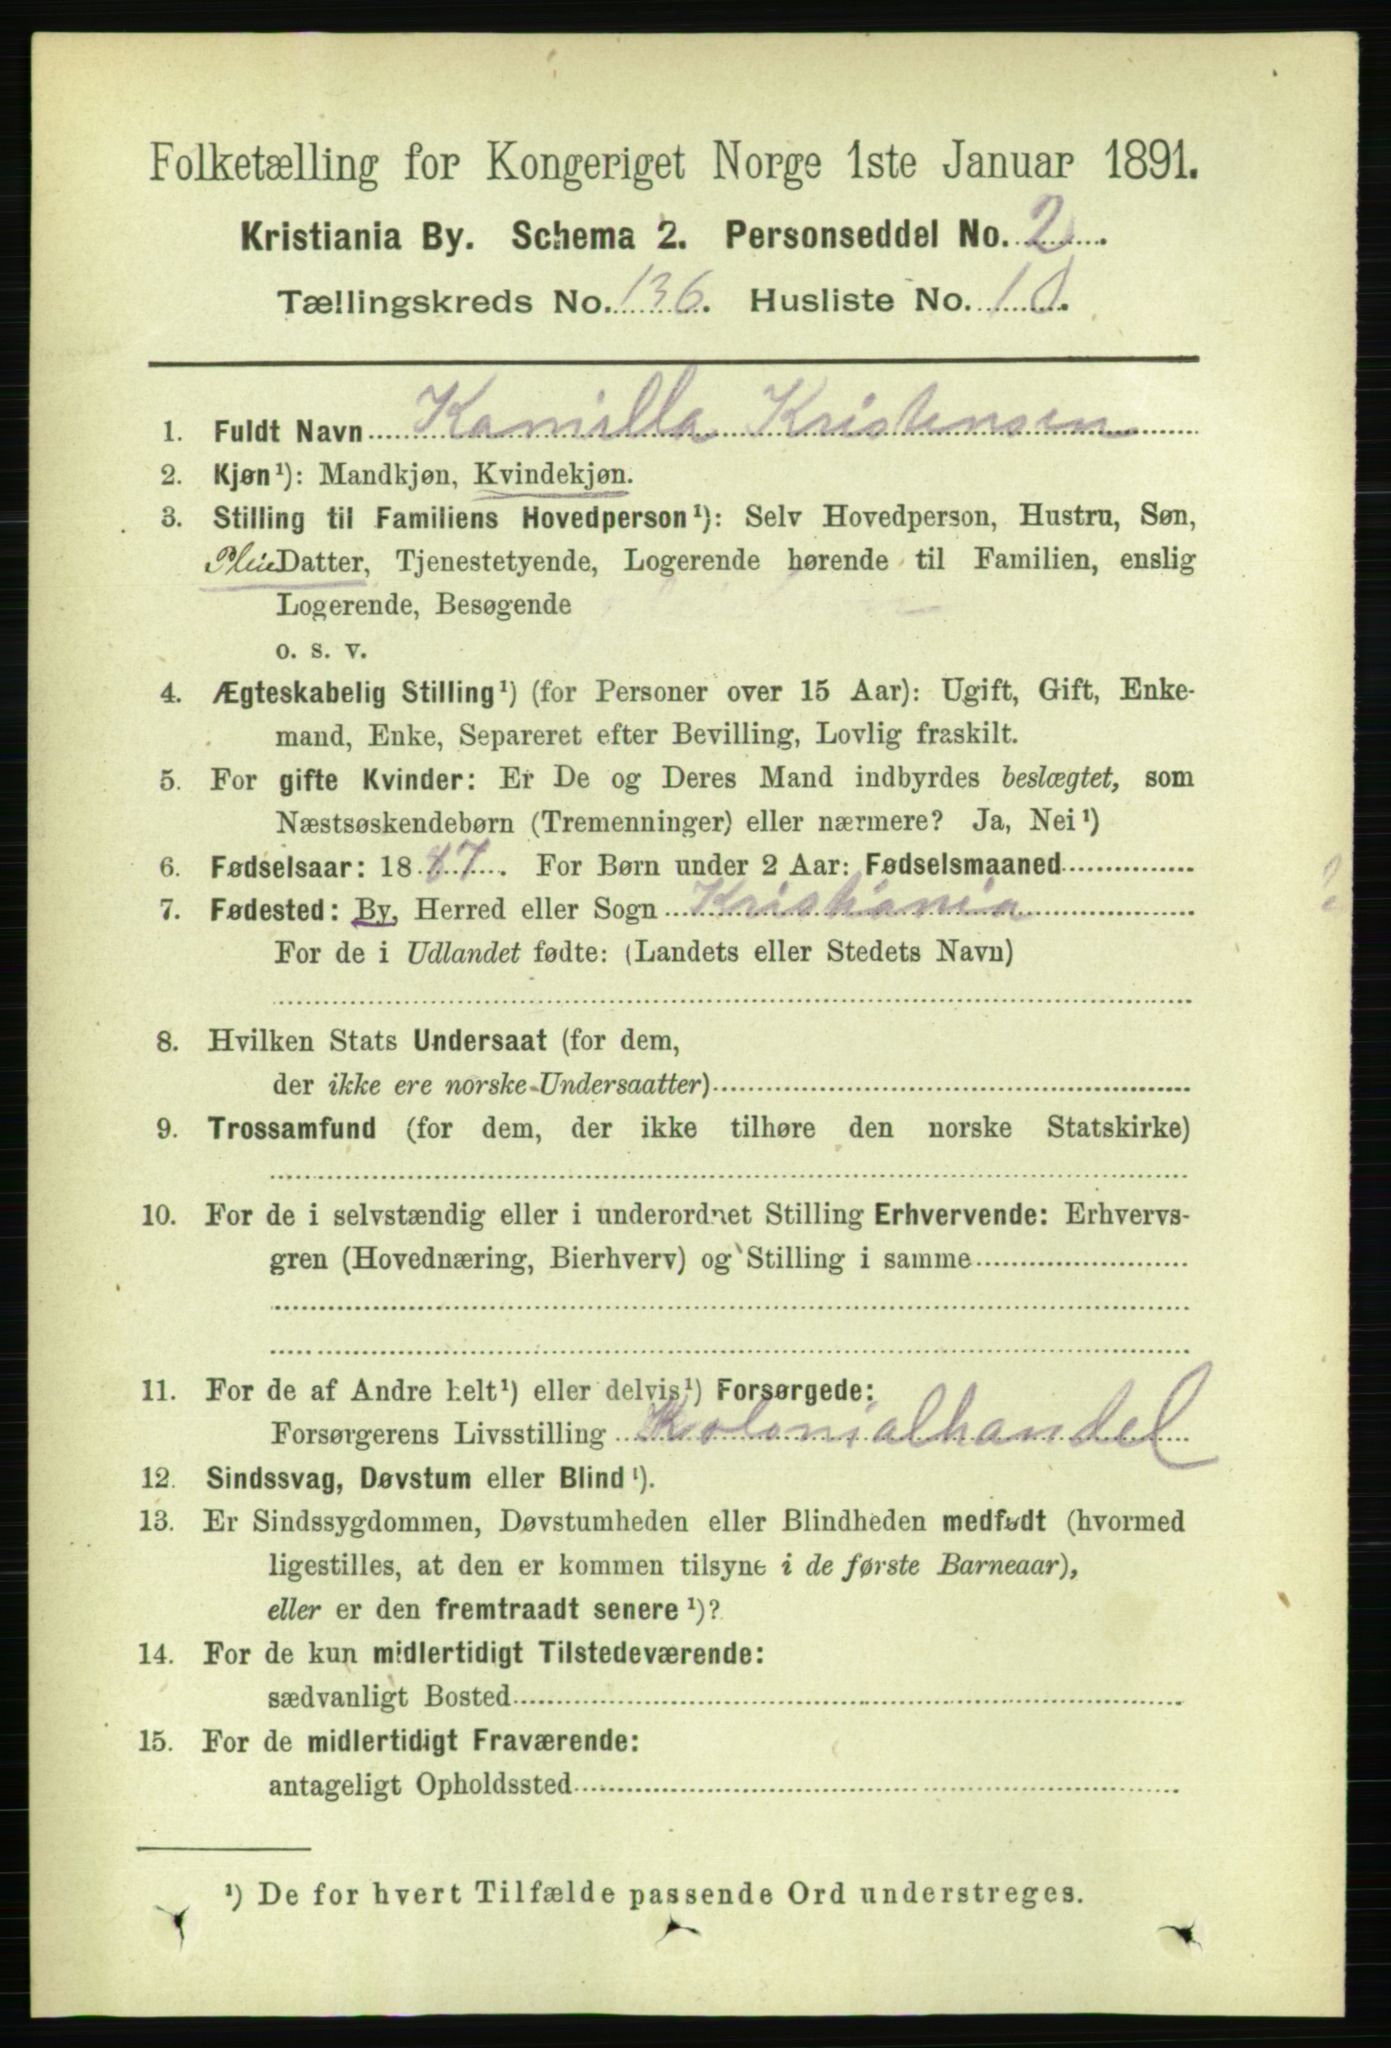 Folketælling for Kongeriget Norge 1ste Januar 1891.
Kristiania By. Schema 2. Personseddel No. 2.
Tællingskreds No. 136. Husliste No. 10.
1. Fuldt Navn Kamilla Kristensen
2. Kjøn¹): Mandkjøn, Kvindekjøn.
3. Stilling til Familiens Hovedperson¹): Selv Hovedperson, Hustru, Søn,
Datter, Tjenestetyende, Logerende hørende til Familien, enslig
Logerende, Besøgende
o. s. v.
4. Ægteskabelig Stilling¹) (for Personer over 15 Aar): Ugift, Gift, Enke-
mand, Enke, Separeret efter Bevilling, Lovlig fraskilt.
5. For gifte Kvinder: Er De og Deres Mand indbyrdes beslægtet, som
Næstsøskendebørn (Tremenninger) eller nærmere? Ja, Nei¹)
6. Fødselsaar: 1887. For Børn under 2 Aar: Fødselsmaaned
7. Fødested: By, Herred eller Sogn Kristiania
For de i Udlandet fødte: (Landets eller Stedets Navn)
8. Hvilken Stats Undersaat (for dem,
der ikke ere norske Undersaatter)
9. Trossamfund (for dem, der ikke tilhøre den norske Statskirke)
10. For de i selvstændig eller i underordnet Stilling Erhvervende: Erhvervs-
gren (Hovednæring, Bierhverv) og Stilling i samme
11. For de af Andre helt¹) eller delvis¹) Forsørgede:
Forsørgerens Livsstilling Kolonialhandel
12. Sindssvag, Døvstum eller Blind¹).
13. Er Sindssygdommen, Døvstumheden eller Blindheden medfødt (hvormed
ligestilles, at den er kommen tilsyne i de første Barneaar),
eller er den fremtraadt senere¹)?
14. For de kun midlertidigt Tilstedeværende:
sædvanligt Bosted
15. For de midlertidigt Fraværende:
antageligt Opholdssted
¹) De for hvert Tilfælde passende Ord understreges.